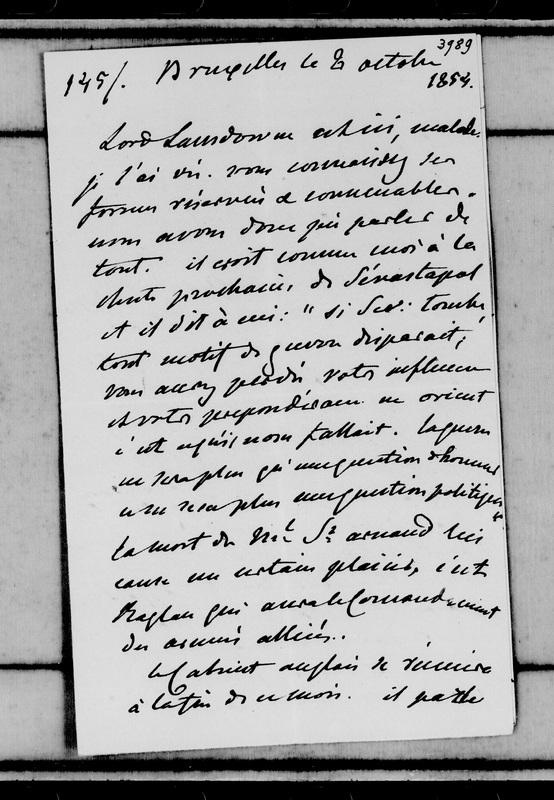 3989
145/. Bruxelles le 8 octobre
1854.
Lord Lansdowne est ici, malade.
je l'ai vu. vous connaissez ses
formes réservées & convenables.
nous avons donc pu parler de
tout. il croit comme moi à la
chute prochaine de Sévastopol
et il dit à ceci : "si Sev: tombe
tout motif de guerre disparait ;
vous aurez perdu votre influence
et votre prépondérance en orient
c'est ce qu'il nous fallait. la guerre
ne sera plus qu'une question d'honneur
ce ne sera plus une question politique"
la mort du Mal St arnaud lui
cause un certain plaisir, c'est
Raglan qui aura le Comandement
des armées alliées.
le Cabinet anglais se réunira
à la fin de ce mois. il parle